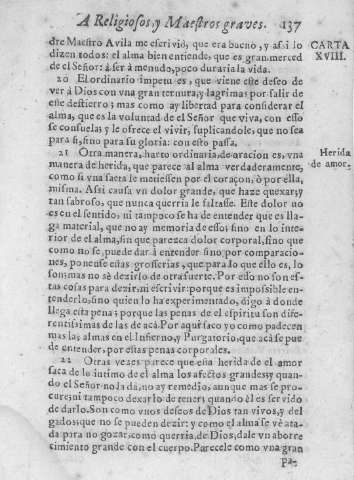 A Religiosos, y Maestros graves. 137
dre Maestro Avila me escrivió, que era bueno, y assi lo
dizen todos: el alma bien entiende, que es gran merced
del Señor: á ser á menudo, poco duraria la vida.
CARTA
XVIII.
20 El ordinario impetu es, que viene este deseo de
ver á Dios con vna gran ternura, y lagrimas por salir de
este destierro; mas como ay libertad para considerar el
alma, que es la voluntad de el Señor que viva, con esso
se consuela, y le ofrece el vivir, suplicandole, que no sea
para si, sino para su gloria: con esto passa.
21 Otra manera, harto ordinaria de oracion es, vna
manera de herida, que parece al alma verdaderamente,
como si vna saeta le metiessen por el coraçon, ò por ella
misma. Assi causa vn dolor grande, que haze quexar, y
tan sabroso, que nunca querria le faltasse. Este dolor no
es en el sentido, ni tampoco se ha de entender que es lla-
ga material, que no ay memoria de esso; sino en lo inte-
rior de el alma, sin que parezca dolor corporal, sino que
como no se puede dar à entender sino por comparacio-
nes, ponense estas grosserias, que para lo que ello es, lo
son, mas no sè dezirlo de otra suerte. Por esso no son es-
tas cosas para dezir, ni escrivir: porque es impossible en-
tenderlo, sino quien lo ha experimentado, digo à donde
llega esta pena; porque las penas de el espiritu son dife-
rentissimas de las de acà. Por aqui saco yo como padecen
mas las almas en el Infierno, y Purgatorio, que acà se pue
de entender, por estas penas corporales.
Herida
de amor.
22 Otras vezes parece que esta herida de el amor
saca de lo intimo de el alma los afectos grandes, y quan-
do el Señor no la dà, no ay remedio, aunque mas se pro-
cure; ni tampoco dexarlo de tener, quando èl es servido
de darlo. Son como vnos deseos de Dios tan vivos, y del
gados, que no se pueden dezir: y como el alma se vè ata-
da para no gozar, como querria, de Dios, dale vn aborre
cimiento grande con el cuerpo. Parecele como vna gran
pa-